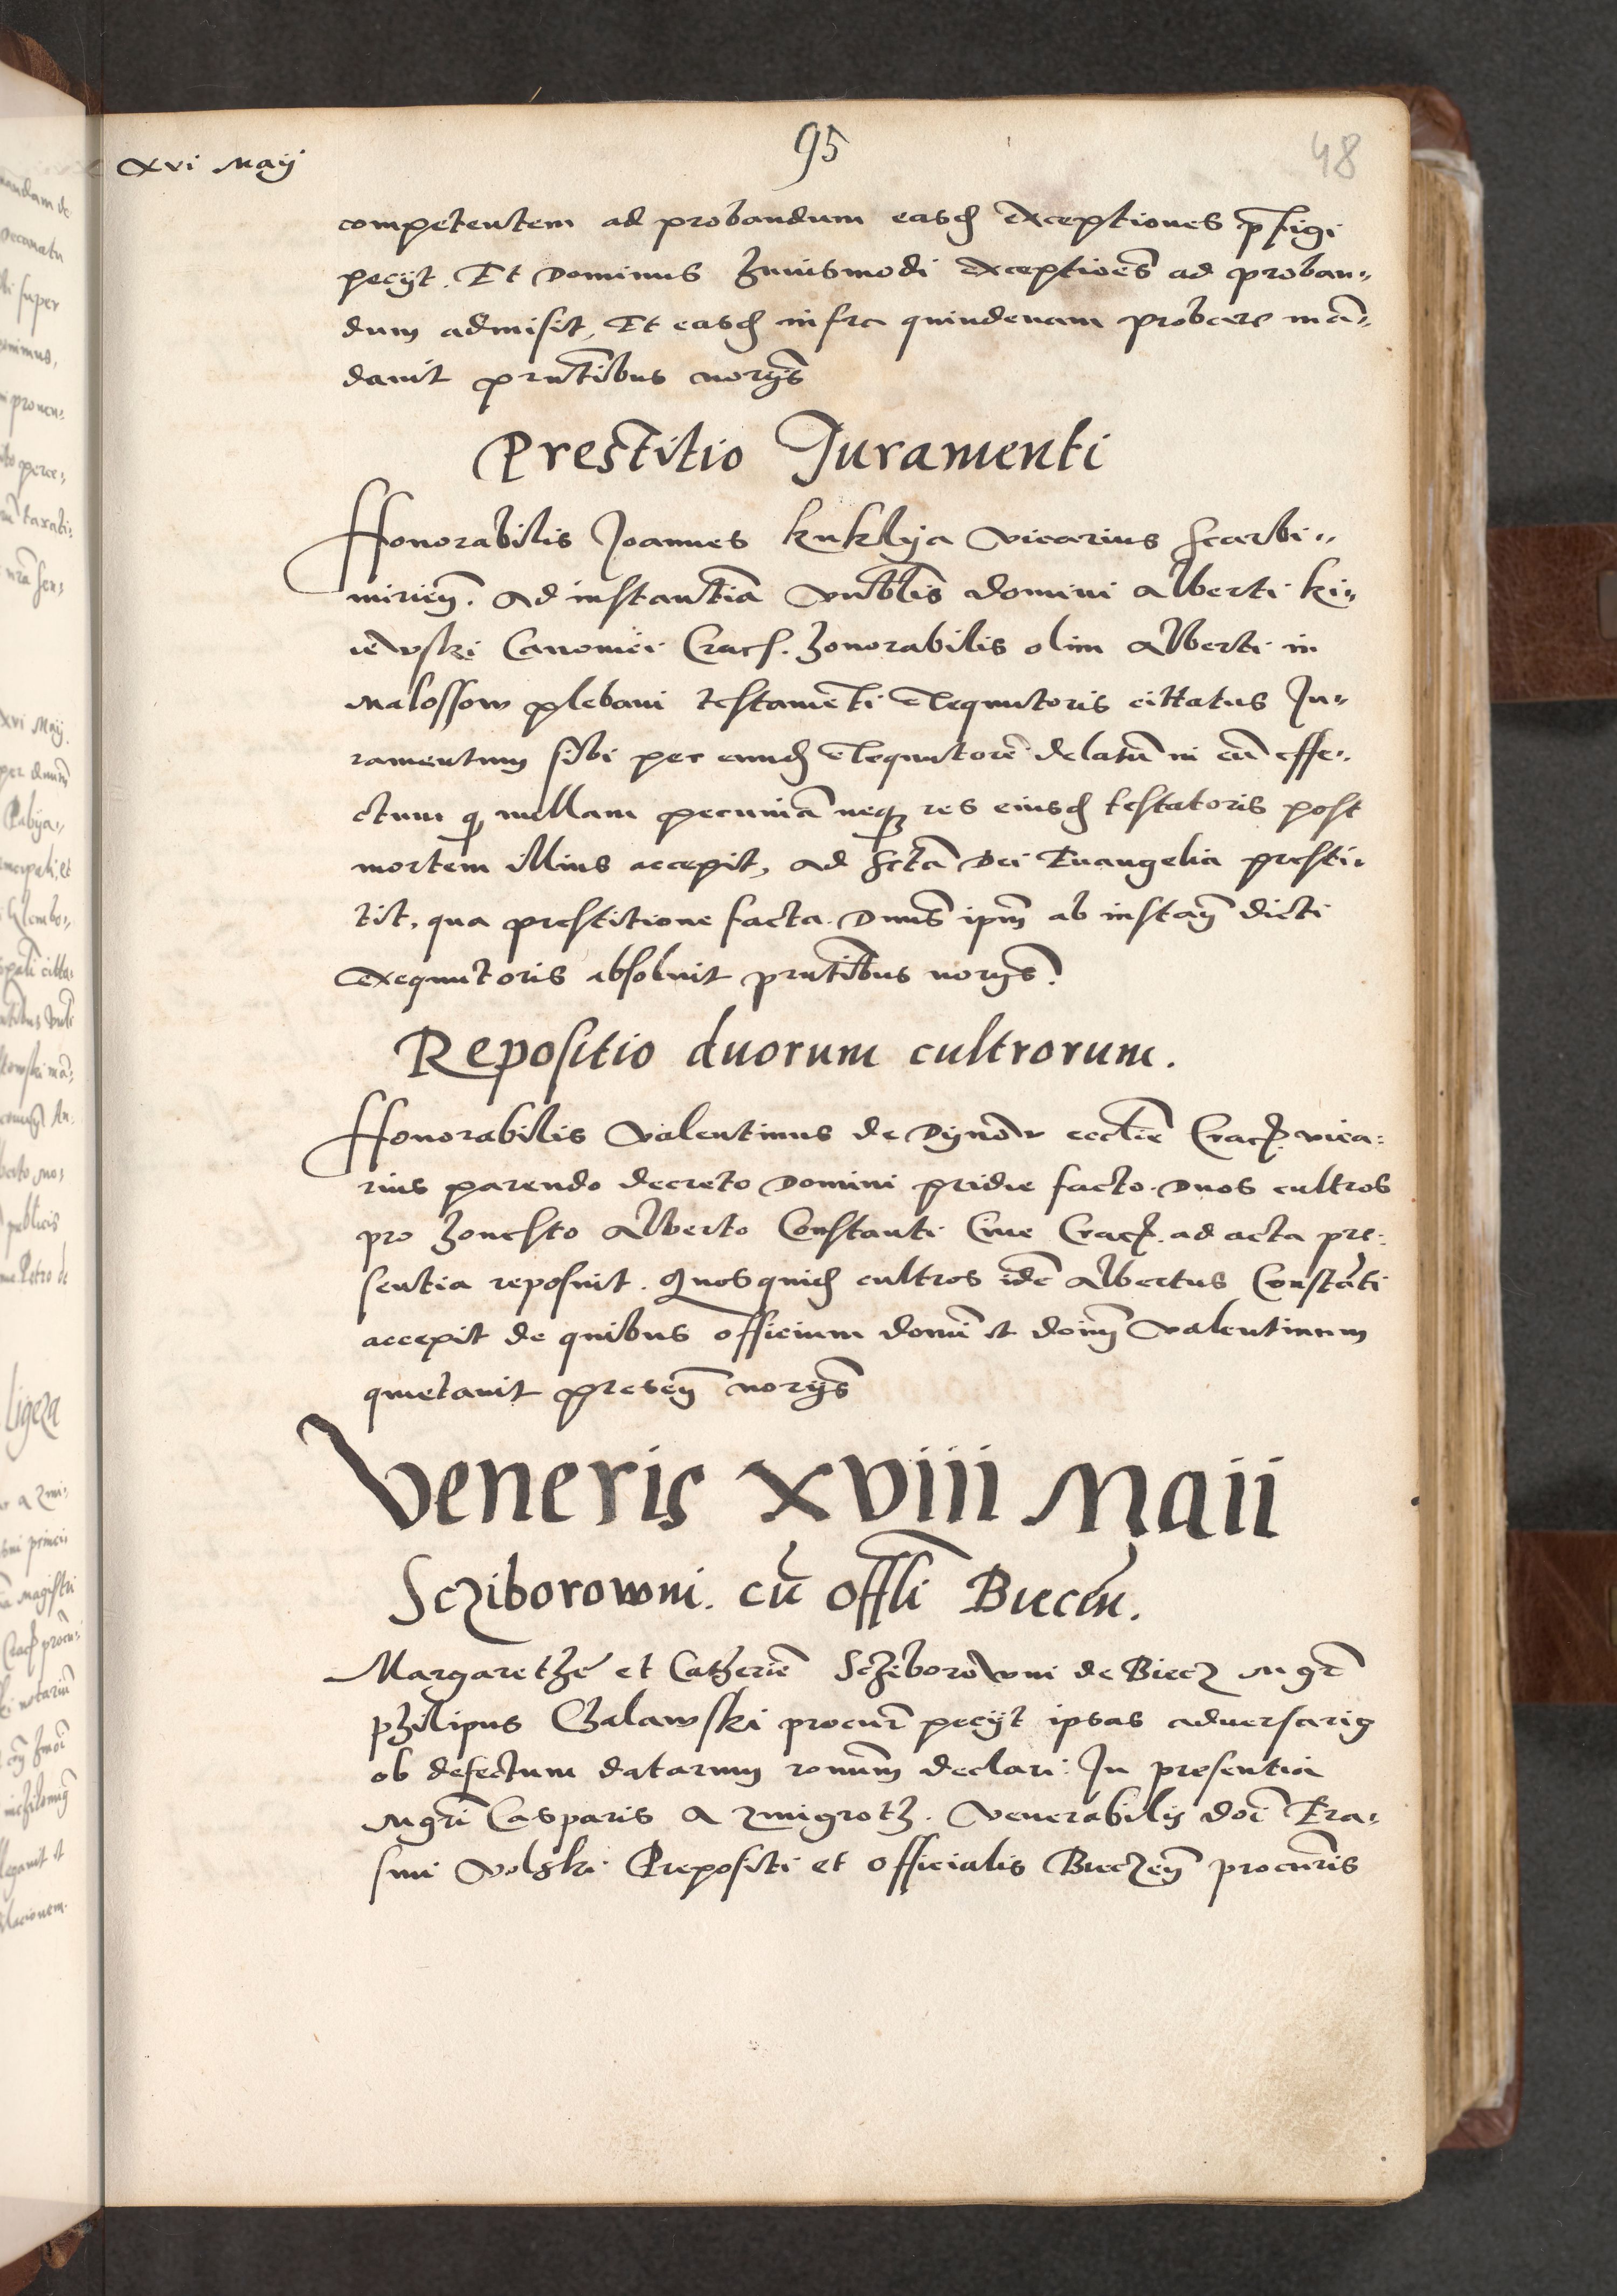 95
48
xvi Maij
competentem ad probandum easd exceptiones pfigi
pecijt. Et Dominus huiusmodi exceptiões ad proban„
dum admisit, Et easd infra quindenam probare mã„
dauit pñtibus norijs
Prestitio Juramenti
Honorabilis Joannes kuklya vicarius Scarbi„
mirieñ. Ad instantiã Vnblis domini Alberti ki„
iewski Canonici Cracs. honorabilis olim Alberti in
Malossow plebani testamẽti exequutoris cittatus Ju„
ramentum sibi per eund exequutorẽ delatũ in eũ effe„
ctum q nullam pecuniã neq res eiusd testatoris post
mortem illius accepit, ad sctã Dei Euangelia presti„
tit, qua prestitione facta. Dnus ipm ab instañ dicti
exequutoris absoluit pñtibus norijs.
Repositio duorum cultrorum.
Honorabilis Valentinus de Dynow eccliẽ Crac. vica:
rius parendo decreto Domini pridie facto. Duos cultros
pro honesto Alberto Constanti Ciue Crac. ad acta pre:
sentia reposuit. Quos quid cultros idẽ Albertus Constãti
accepit de quibus officium domi et doim Valentinum
quietauit preseñ norijs
Veneris xviii Maii
Scziborowni. cũ offli Biecen.
Margarethe et Catherie Scziborowni de Biecz Mgr
philipus Chalawski procur pecijt ipsas adversarig
ob defectum datarum ronum declari: In presentia
Mgri Casparis a Zmigroth. Venerabilis doi Era„
smi Volski Prepositi et officialis Bieczeñ procuris